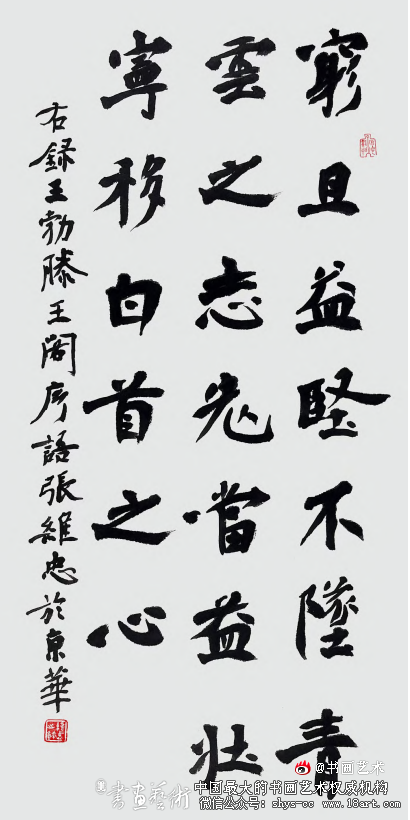 窮且益堅不墜青
雲之志老當益壯
寧移白首之心
右錄王勃滕王閣序語張維忠於京華
@书画艺术
書画藝術
中国最大的书画艺术权威机构
微信公众号: shys-cc www.18art.com